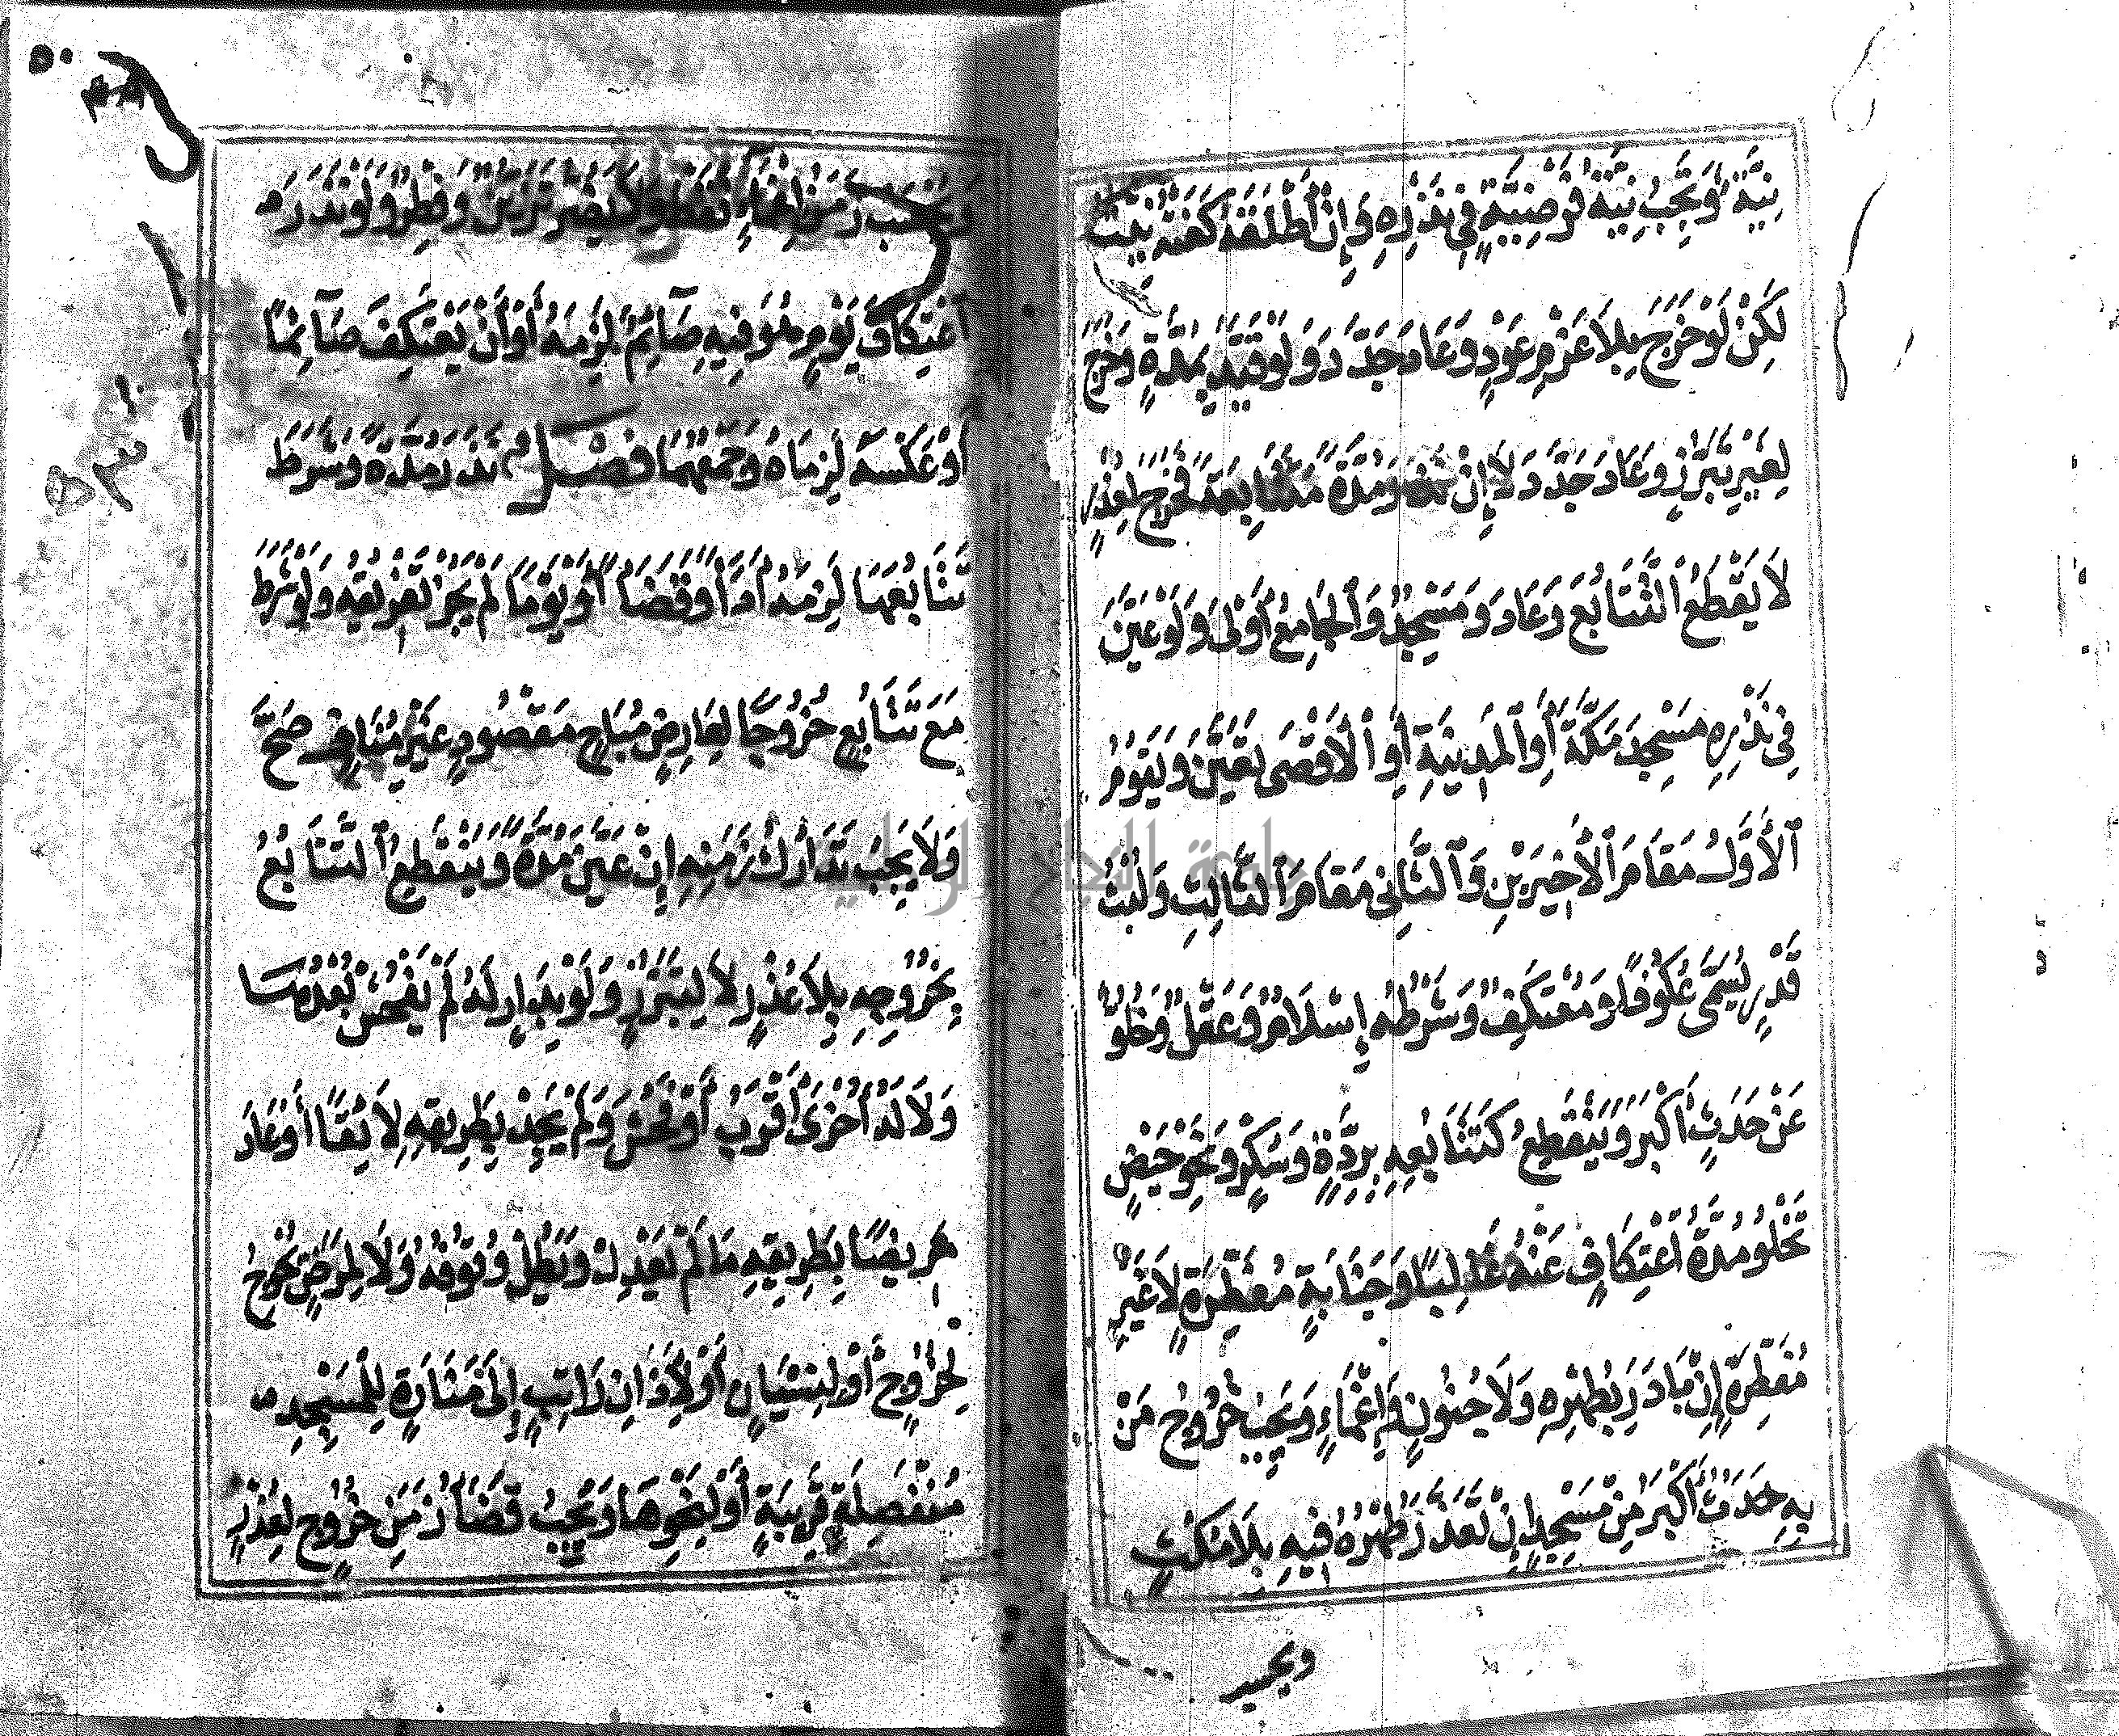 نِيَّةٌ وَتَجِبُ نِيَّةُ فَرْضِيَّةٍ فِي نَذْرِهِ وَإِنْ أَطْلَقَهُ كَفَتْهُ نِيَّتُهُ
لَكِنْ لَوْ خَرَجَ بِلَا عَزْمِ عَوْدٍ وَعَادَ جَدَّدَ وَلَوْ قَيَّدَ بِمُدَّةٍ وَخَرَجَ
لِغَيْرِ تَبَرُّزٍ وَعَادَ جَدَّدَ لَا إِنْ نَذَرَ مُدَّةً مُتَتَابِعَةً فَخَرَجَ لِعُذْرٍ
لَا يَقْطَعُ التَّتَابُعَ وَعَادَ وَمَسْجِدٌ وَالْجَامِعُ أَوْلَى وَلَوْ عَيَّنَ
فِي نَذْرِهِ مَسْجِدَ مَكَّةَ أَوِ الْمَدِينَةِ أَوِ الْأَقْصَى تَعَيَّنَ وَيَقُومُ
الْأَوَّلُ مَقَامَ الْأَخِيرَيْنِ وَالثَّانِي مَقَامَ الثَّالِثِ وَلُبْثُ
قَدْرٍ يُسَمَّى عُكُوفًا وَمُعْتَكِفٌ وَشَرْطُهُ إِسْلَامٌ وَعَقْلٌ وَخُلُوٌّ
عَنْ حَدَثٍ أَكْبَرَ وَيَنْقَطِعُ كَتَتَابُعِهِ بِرِدَّةٍ وَسُكْرٍ وَنَحْوِ حَيْضٍ
تَخْلُو مُدَّةُ اعْتِكَافٍ عَنْهُ غَالِبًا وَجَنَابَةٍ مُفَطِّرَةٍ لَا غَيْرِ
مُفَطِّرَةٍ إِنْ بَادَرَ بِطُهْرِهِ وَلَا جُنُونٍ وَإِغْمَاءٍ وَيَجِبُ خُرُوجُ مَنْ
بِهِ حَدَثٌ أَكْبَرُ مِنْ مَسْجِدٍ إِنْ تَعَذَّرَ طُهْرُهُ فِيهِ بِلَا مُكْثٍ
ويحسب
وَيُحْسَبُ زَمَنُ إِغْمَاءٍ فَقَطْ وَلَا يَضُرُّ تَزَيُّنٌ وَفِطْرٌ وَلَوْ نَذَرَ
اعْتِكَافَ يَوْمٍ هُوَ فِيهِ صَائِمٌ لَزِمَهُ أَوْ أَنْ يَعْتَكِفَ صَائِمًا
أَوْ عَكْسَهُ لَزِمَاهُ وَجَمْعُهُمَا فَصْلٌ نَذَرَ مُدَّةً وَشَرَطَ
تَتَابُعَهَا لَزِمَهُ أَدَاءً وَقَضَاءً أَوْ يَوْمًا لَمْ يَجُزْ تَفْرِيقُهُ وَلَوْ شَرَطَ
مَعَ تَتَابُعٍ خُرُوجًا لِعَارِضٍ مُبَاحٍ مَقْصُودٍ غَيْرِ مُنَافٍ صَحَّ
وَلَا يَجِبُ تَدَارُكُ زَمَنِهِ إِنْ عَيَّنَ مُدَّةً وَيَنْقَطِعُ التَّتَابُعُ
بِخُرُوجِهِ بِلَا عُذْرٍ لَا لِتَبَرُّزٍ وَلَوْ بِدَارٍ لَهُ لَمْ يَفْحُشْ بُعْدُهَا
وَلَا لَهُ أُخْرَى أَقْرَبُ أَوْ فَحُشَ وَلَمْ يَجِدْ بِطَرِيقِهِ لَائِقًا أَوْ عَادَ
مَرِيضًا بِطَرِيقِهِ مَا لَمْ يَعْدِلْ وَيَطُلْ وُقُوفُهُ وَلَا لِمَرَضٍ يُحْوِجُ
لِخُرُوجٍ أَوْ لِنِسْيَانٍ أَوْ لِأَذَانِ رَاتِبٍ إِلَى مَنَارَةٍ لِلْمَسْجِدِ
مُنْفَصِلَةٍ قَرِيبَةٍ أَوْ لِنَحْوِهَا وَيَجِبُ قَضَاءُ زَمَنِ خُرُوجٍ لِعُذْرٍ